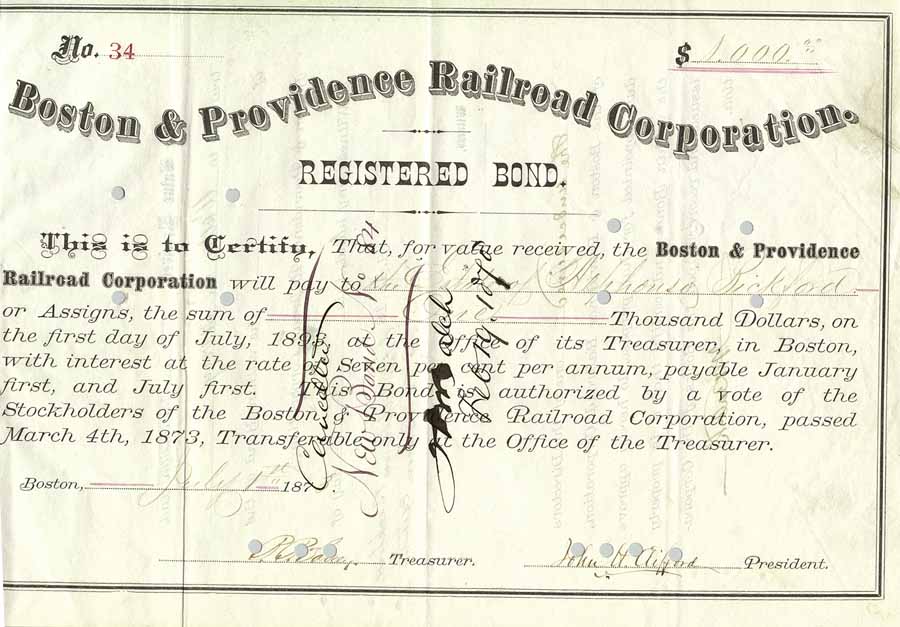 No. 34
$ 1,000.00
Boston & Providence Railroad Corporation.
REGISTERED BOND.
This is to Certify, That, for value received, the Boston & Providence
Railroad Corporation will pay to the Alphonso Bickford
or Assigns, the sum of One Thousand Dollars, on
the first day of July, 1893, at the Office of its Treasurer, in Boston,
with interest at the rate of Seven per cent per annum, payable January
first, and July first. This Bond is authorized by a vote of the
Stockholders of the Boston & Providence Railroad Corporation, passed
March 4th, 1873, Transferable only at the Office of the Treasurer.
Boston, July 1st 187
Treasurer. John H. Clifford President.
Cancelled
New Bond No.